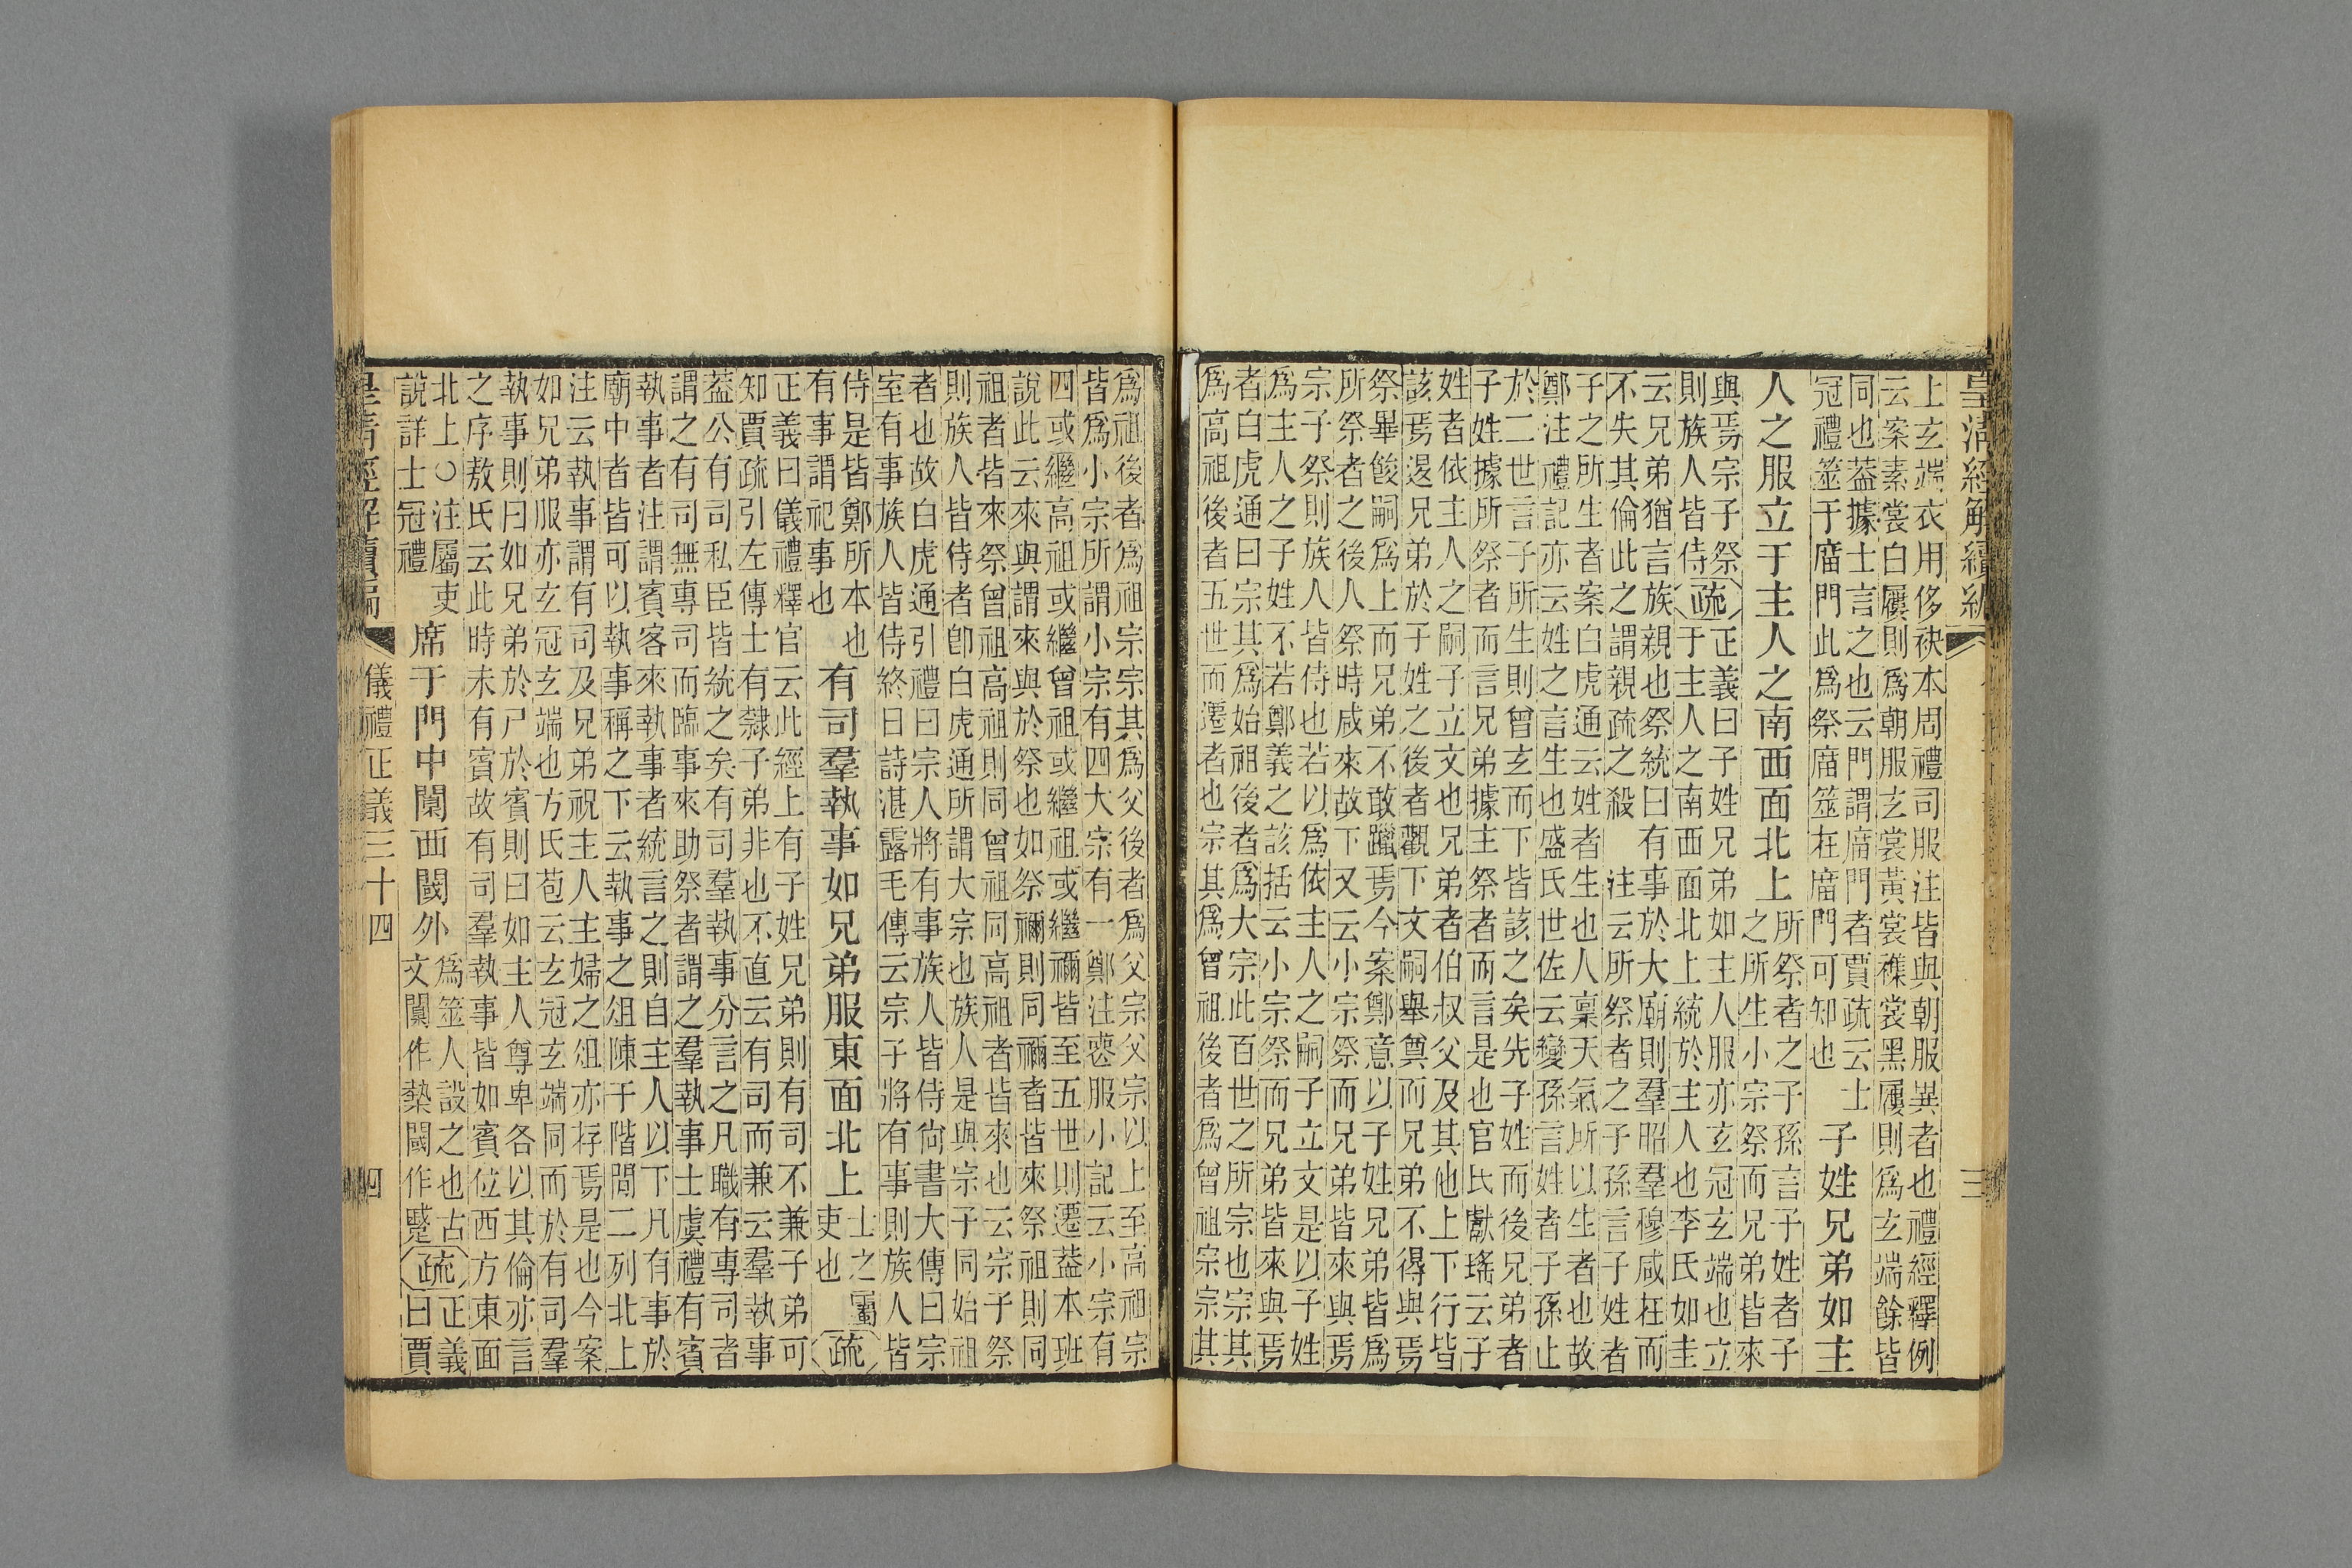 皇清經解續編　三
上玄端衣用侈袂本周禮司服注皆與朝服異者也禮經釋例
云案素裳白屨則爲朝服玄裳黃裳襍裳黑屨則爲玄端餘皆
同也葢據士言之也云門謂廟門者賈疏云士
冠禮筮于廟門此爲祭廟筮在廟門可知也
子姓兄弟如主
人之服立于主人之南西面北上
所祭者之子孫言子姓者子
之所生小宗祭而兄弟皆來
與焉宗子祭
則族人皆侍
疏
正義曰子姓兄弟如主人服亦玄冠玄端也立
于主人之南西面北上統於主人也李氏如圭
云兄弟猶言族親也祭統曰有事於大廟則羣昭羣穆咸在而
不失其倫此之謂親疏之殺　注云所祭者之子孫言子姓者
子之所生者案白虎通云姓者生也人稟天氣所以生者也故
鄭注禮記亦云姓之言生也盛氏世佐云變孫言姓者子孫止
於二世言子所生則曾玄而下皆該之矣先子姓而後兄弟者
子姓據所祭者而言兄弟據主祭者而言是也官氏獻瑤云子
姓者依主人之嗣子立文也兄弟者伯叔父及其他上下行皆
該焉逷兄弟於子姓之後者觀下文嗣舉奠而兄弟不得與焉
祭畢餕嗣爲上而兄弟不敢躐焉今案鄭意以子姓兄弟皆爲
所祭者之後人祭時咸來故下又云小宗祭而兄弟皆來與焉
宗子祭則族人皆侍也若以爲依主人之嗣子立文是以子姓
爲主人之子姓不若鄭義之該括云小宗祭而兄弟皆來與焉
者白虎通曰宗其爲始祖後者爲大宗此百世之所宗也宗其
爲高祖後者五世而遷者也宗其爲曾祖後者爲曾祖宗宗其
爲祖後者爲祖宗宗其爲父後者爲父宗父宗以上至高祖宗
皆爲小宗所謂小宗有四大宗有一鄭注喪服小記云小宗有
四或繼高祖或繼曾祖或繼祖或繼禰皆至五世則遷葢本班
說此云來與謂來與於祭也如祭禰則同禰者皆來祭祖則同
祖者皆來祭曾祖高祖則同曾祖同高祖者皆來也云宗子祭
則族人皆侍者卽白虎通所謂大宗也族人是與宗子同始祖
者也故白虎通引禮曰宗人將有事族人皆侍尙書大傳曰宗
室有事族人皆侍終日詩湛露毛傳云宗子將有事則族人皆
侍是皆鄭所本也
有事謂祀事也
有司羣執事如兄弟服東面北上
士之屬
吏也
疏
正義曰儀禮釋官云此經上有子姓兄弟則有司不兼子弟可
知賈疏引左傳士有隸子弟非也不直云有司而兼云羣執事
葢公有司私臣皆統之矣有司羣執事分言之凡職有專司者
謂之有司無專司而臨事來助祭者謂之羣執事士虞禮有賓
執事者注謂賓客來執事者統言之則自主人以下凡有事於
廟中者皆可以執事稱之下云執事之俎陳于階閒二列北上
注云執事謂有司及兄弟祝主人主婦之俎亦存焉是也今案
如兄弟服亦玄冠玄端也方氏苞云玄冠玄端同而於有司羣
執事則曰如兄弟於尸於賓則曰如主人尊卑各以其倫亦言
之序敖氏云此時未有賓故有司羣執事皆如賓位西方東面
北上○注屬吏
說詳士冠禮
席于門中闑西閾外
爲筮人設之也古
文闑作槷閾作蹙
疏
正義
曰賈
皇清經解續編　儀禮正義三十四　四